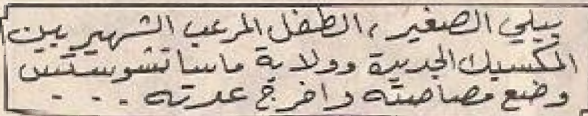 بيلي الصغير ، الطفل المرعب الشهير بين
المكسيك الجديدة وولاية ماساتشوستس
وضع مصاصته واخرج عدته . . .